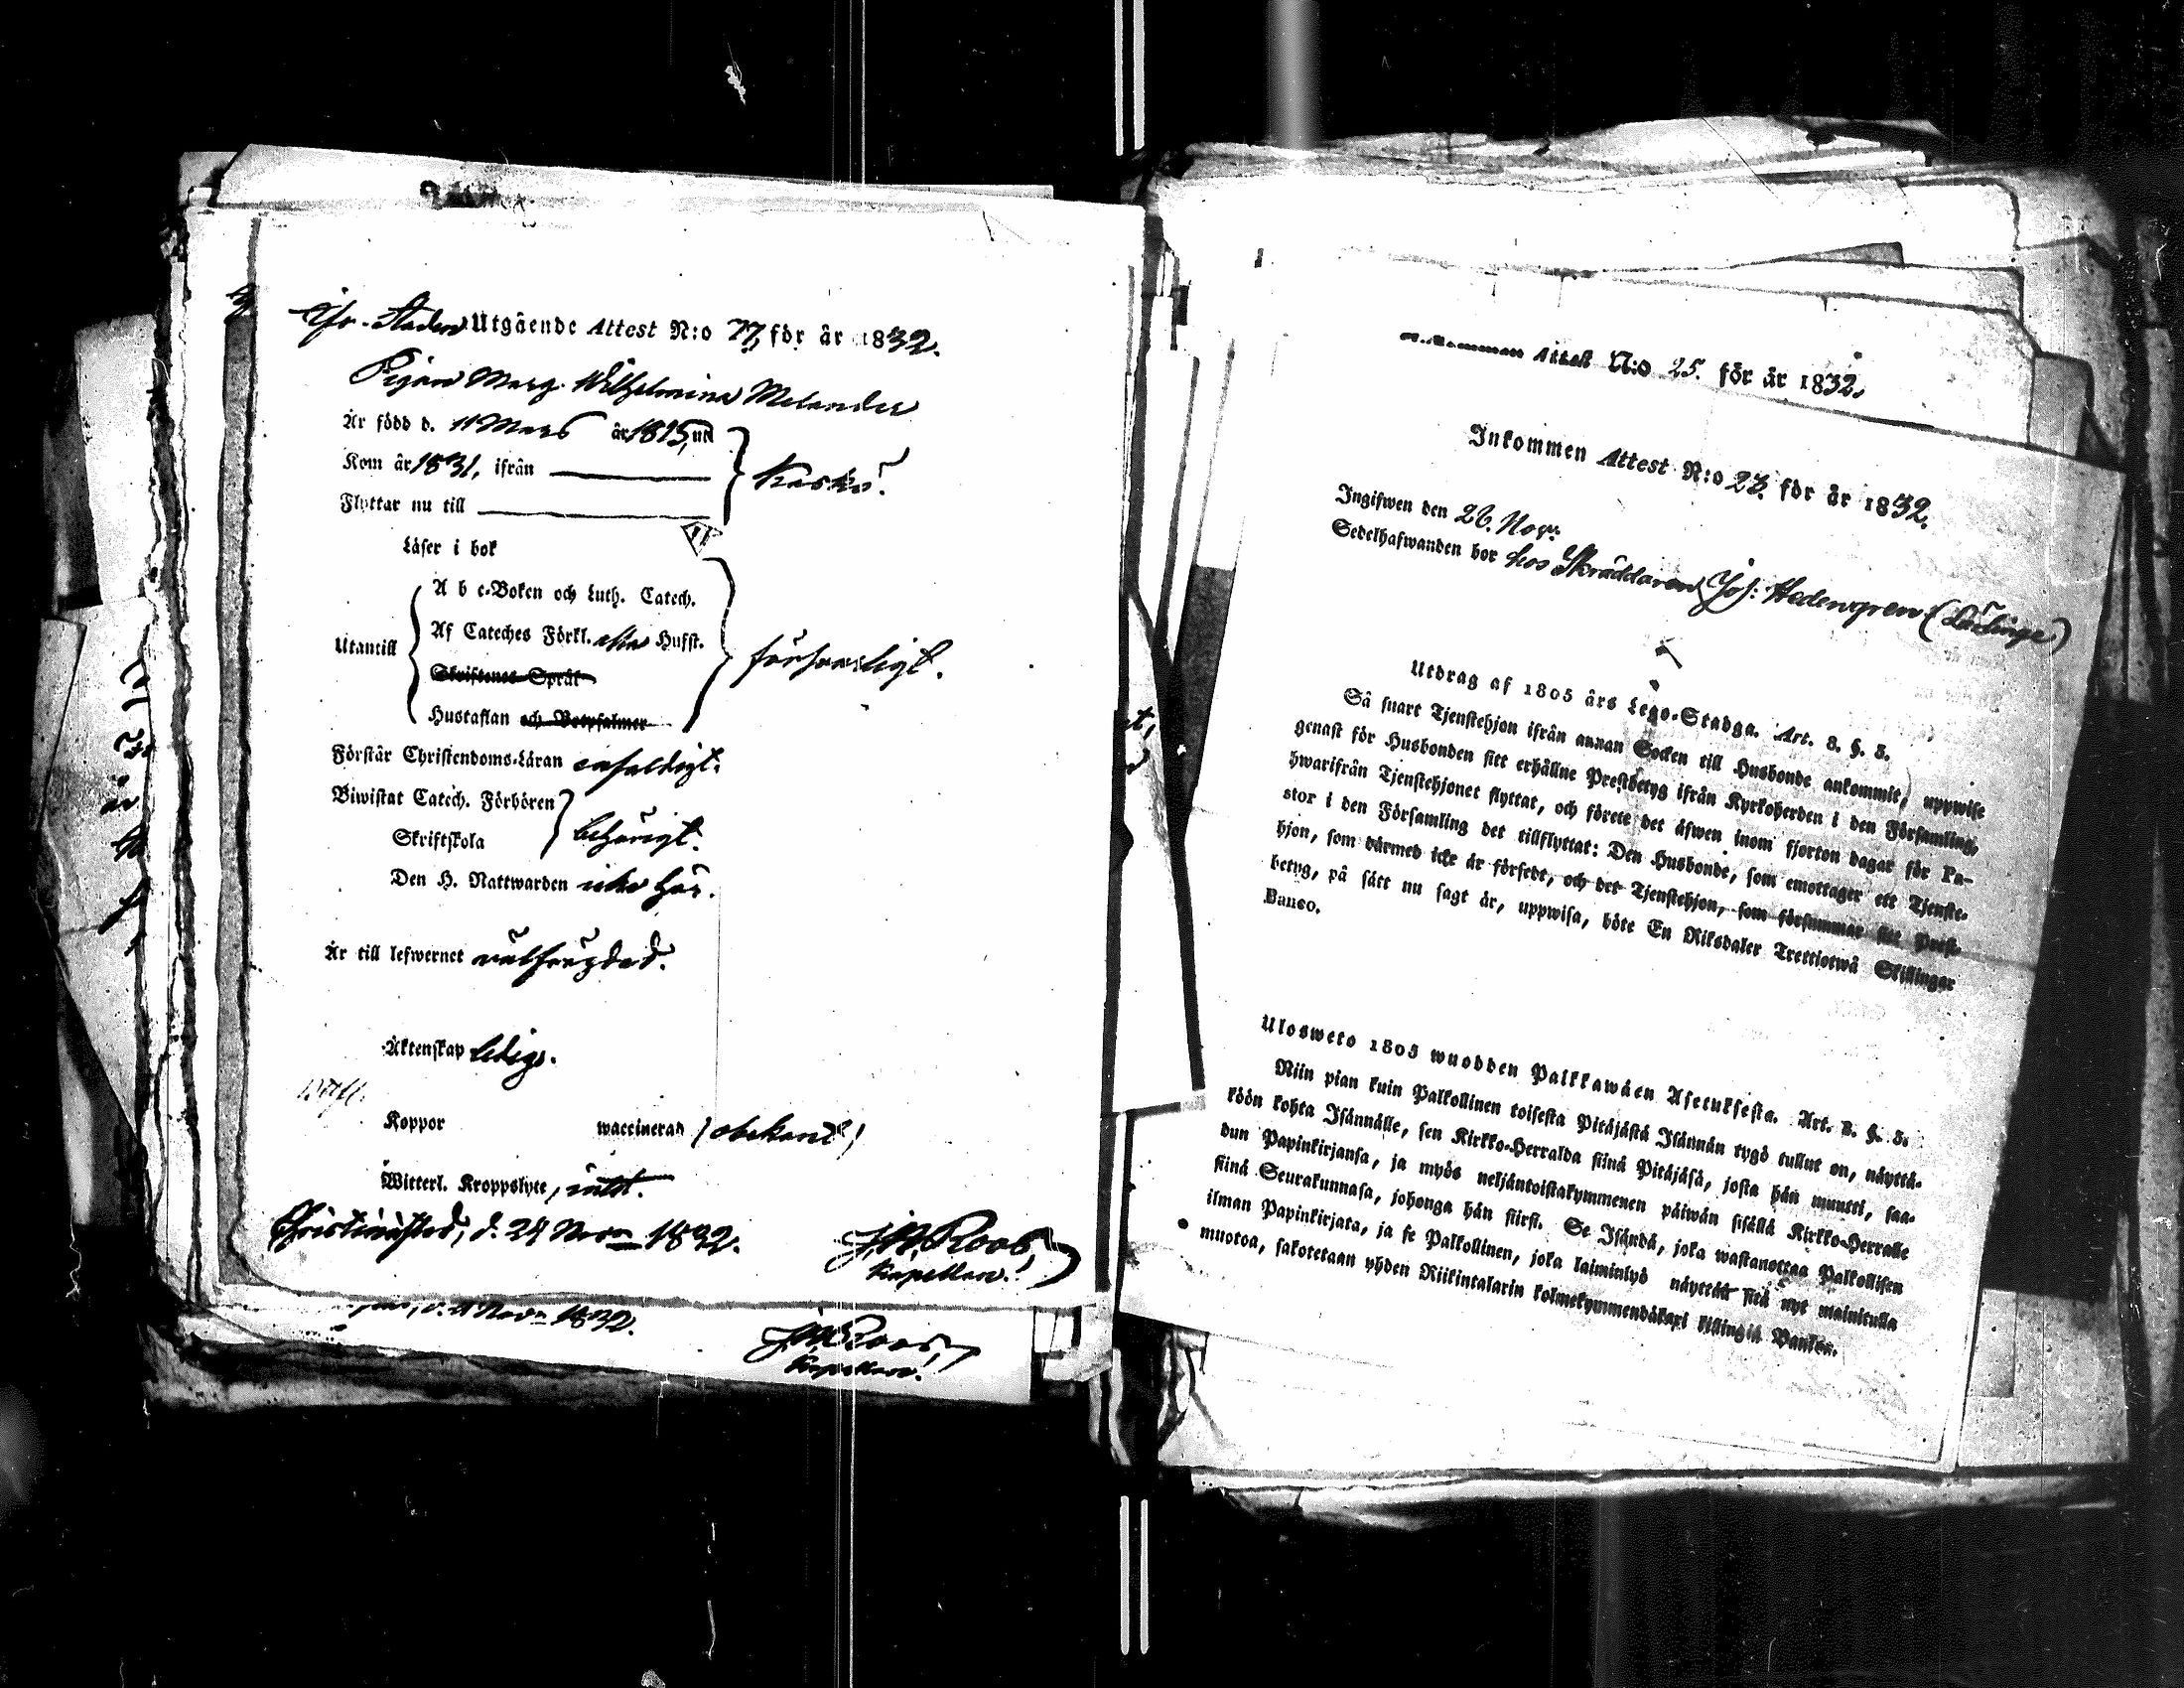 Utgående Attest N:o 77, för år 1832.
Pigan Marg. Wilhelmina Melander
Är född d. 11 Mars år 1815, uti
Kom år 1831, ifrån
Kaskö.
Flyttar nu till
Läser i bok
A b c-Boken och Luth. Catech.
Af Cateches Förkl. Hufst.
Utantill
försvarligt.
Skriftenes Språk
Hustaflan och Botpsalmer
Förstår Christendoms-Läran enfaldigt.
Biwistat Catech. Förhören
behörigt.
Skriftskola
Den H. Nattwarden icke här.
Är till lefwernet wälfrägdad.
Äktenskap ledig.
Koppor waccinerad obekant!
Witterl. Kroppslyte, intet.
Christinæstad, d. 24 Nov. 1832.
J. N. Roos,
Kapellan.
d. 21 Nov. 1832.
J. N. Roos,
Kapellan!
Attest N:o 25. för år 1832.
Inkommen Attest N:o 23. för år 1832.
Ingifwen den 26. Nov:
Sedelhafwanden bor hos Skräddaren Joh: Hedengren
Utdrag af 1805 års Lego-Stadga. Art. 3. §. 5.
Så snart Tjenstehjon ifrån annan Socken till Husbonde ankommit, uppwise
genast för Husbonden sitt erhållne Prestbetyg ifrån Kyrkoherden i den Församling,
hwarifrån Tjenstehjonet flyttat, och förete det äfwen inom fjorton dagar för Pa-
stor i den Församling det tillflyttat: Den Husbonde, som emottager ett Tjenste-
hjon, som därmed icke är försedt, och det Tjenstehjon, som försummar sitt Prest-
betyg, på sätt nu sagt är, uppwisa, böte En Riksdaler Trettiotwå Skillingar
Banco.
Ulosweto 1805 wuodden Palkkawäen Asetuksesta. Art. 3. §. 5.
Niin pian kuin Palkollinen toisesta Pitäjästä Isännän tygö tullut on, näyttä-
köön kohta Isännälle, sen Kirkko-Herralda siinä Pitäjäsä, josta hän muutti, saa-
dun Papinkirjansa, ja myös neljäntoistakymmenen päiwän sisällä Kirkko-Herralle
siinä Seurakunnasa, johonga hän siirsi. Se Isändä, joka wastanottaa Palkollisen
ilman Papinkirjata, ja se Palkollinen, joka laiminlyö näyttää sitä nyt mainitulla
muotoa, sakotetaan yhden Riikintalarin kolmekymmendäkaxi killingiä Bankos.